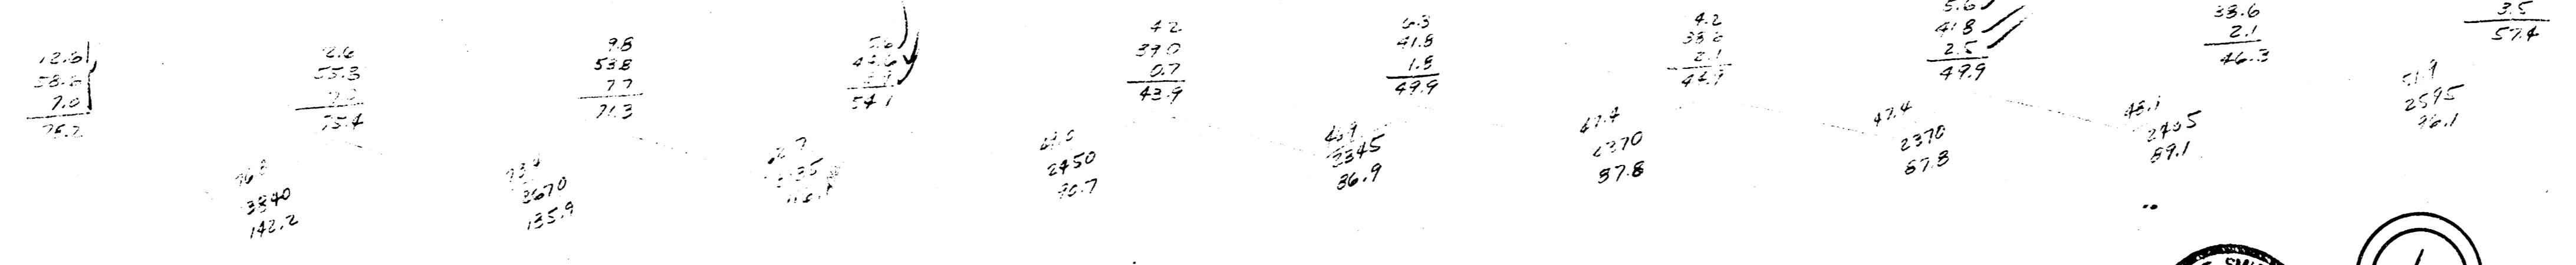 12.6
58.6
7.0
78.2
12.6
55.3
75.4
9.8
53.8
7.7
71.3
5.6
54.1
4.2
39.0
0.7
43.9
6.3
41.8
1.8
49.9
4.2
38.6
2.1
44.9
5.6
41.8
2.5
49.9
38.6
2.1
46.3
3.5
57.4
3840
142.2
73.4
3670
135.9
2450
90.7
46.9
2345
86.9
47.4
2370
87.8
47.4
2370
87.8
48.1
2405
89.1
51.9
2595
96.1